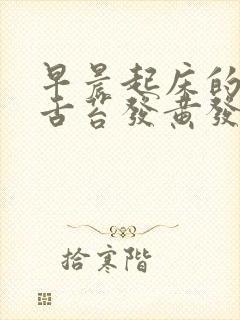 早晨起床的
舌苔發黃發
拾寒階